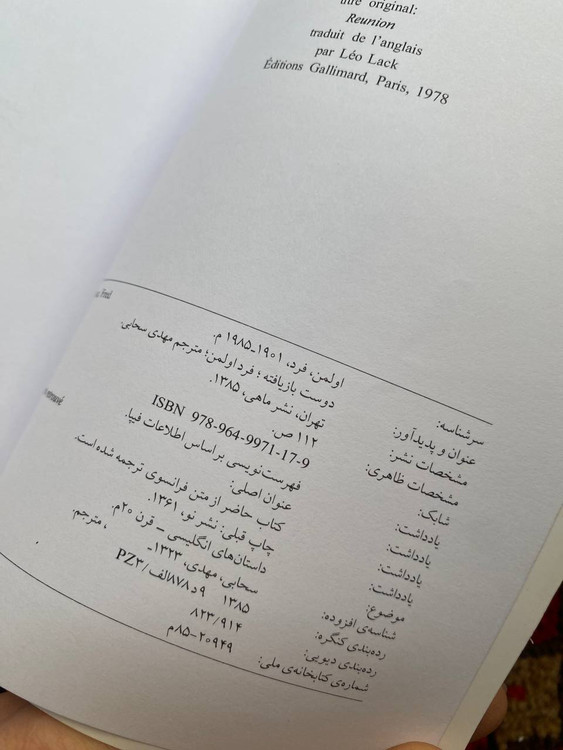 titre original:
Reunion
traduit de l'anglais
par Léo Lack
Éditions Gallimard, Paris, 1978
سرشناسه: اولمن، فرد، ۱۹۰۱ـ۱۹۸۵ م.
عنوان و پدیدآور: دوست بازیافته ؛ فرد اولمن؛ مترجم مهدی سحابی.
مشخصات نشر: تهران، نشر ماهی، ۱۳۸۵.
مشخصات ظاهری: ۱۱۲ ص.
شابک: ISBN 978-964-9971-17-9
یادداشت: فهرست‌نویسی براساس اطلاعات فیپا.
یادداشت: عنوان اصلی:
یادداشت: کتاب حاضر از متن فرانسوی ترجمه شده است.
یادداشت: چاپ قبلی: نشر نو، ۱۳۶۱.
موضوع: داستان‌های انگلیسی ـ قرن ۲۰م.
شناسه‌ی افزوده: سحابی، مهدی، ۱۳۲۳ـ ، مترجم.
رده‌بندی کنگره: ۱۳۸۵ ۹د۸۷۸الف/PZ۳
رده‌بندی دیویی: ۸۲۳/۹۱۴
شماره‌ی کتابخانه‌ی ملی: ۲۰۹۴۹-۸۵م